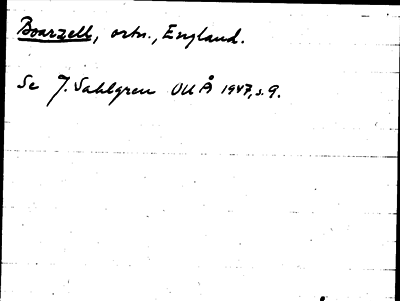 Boarzell, ortn., England.
Se J. Sahlgren OUÅ 1947, s. 9.